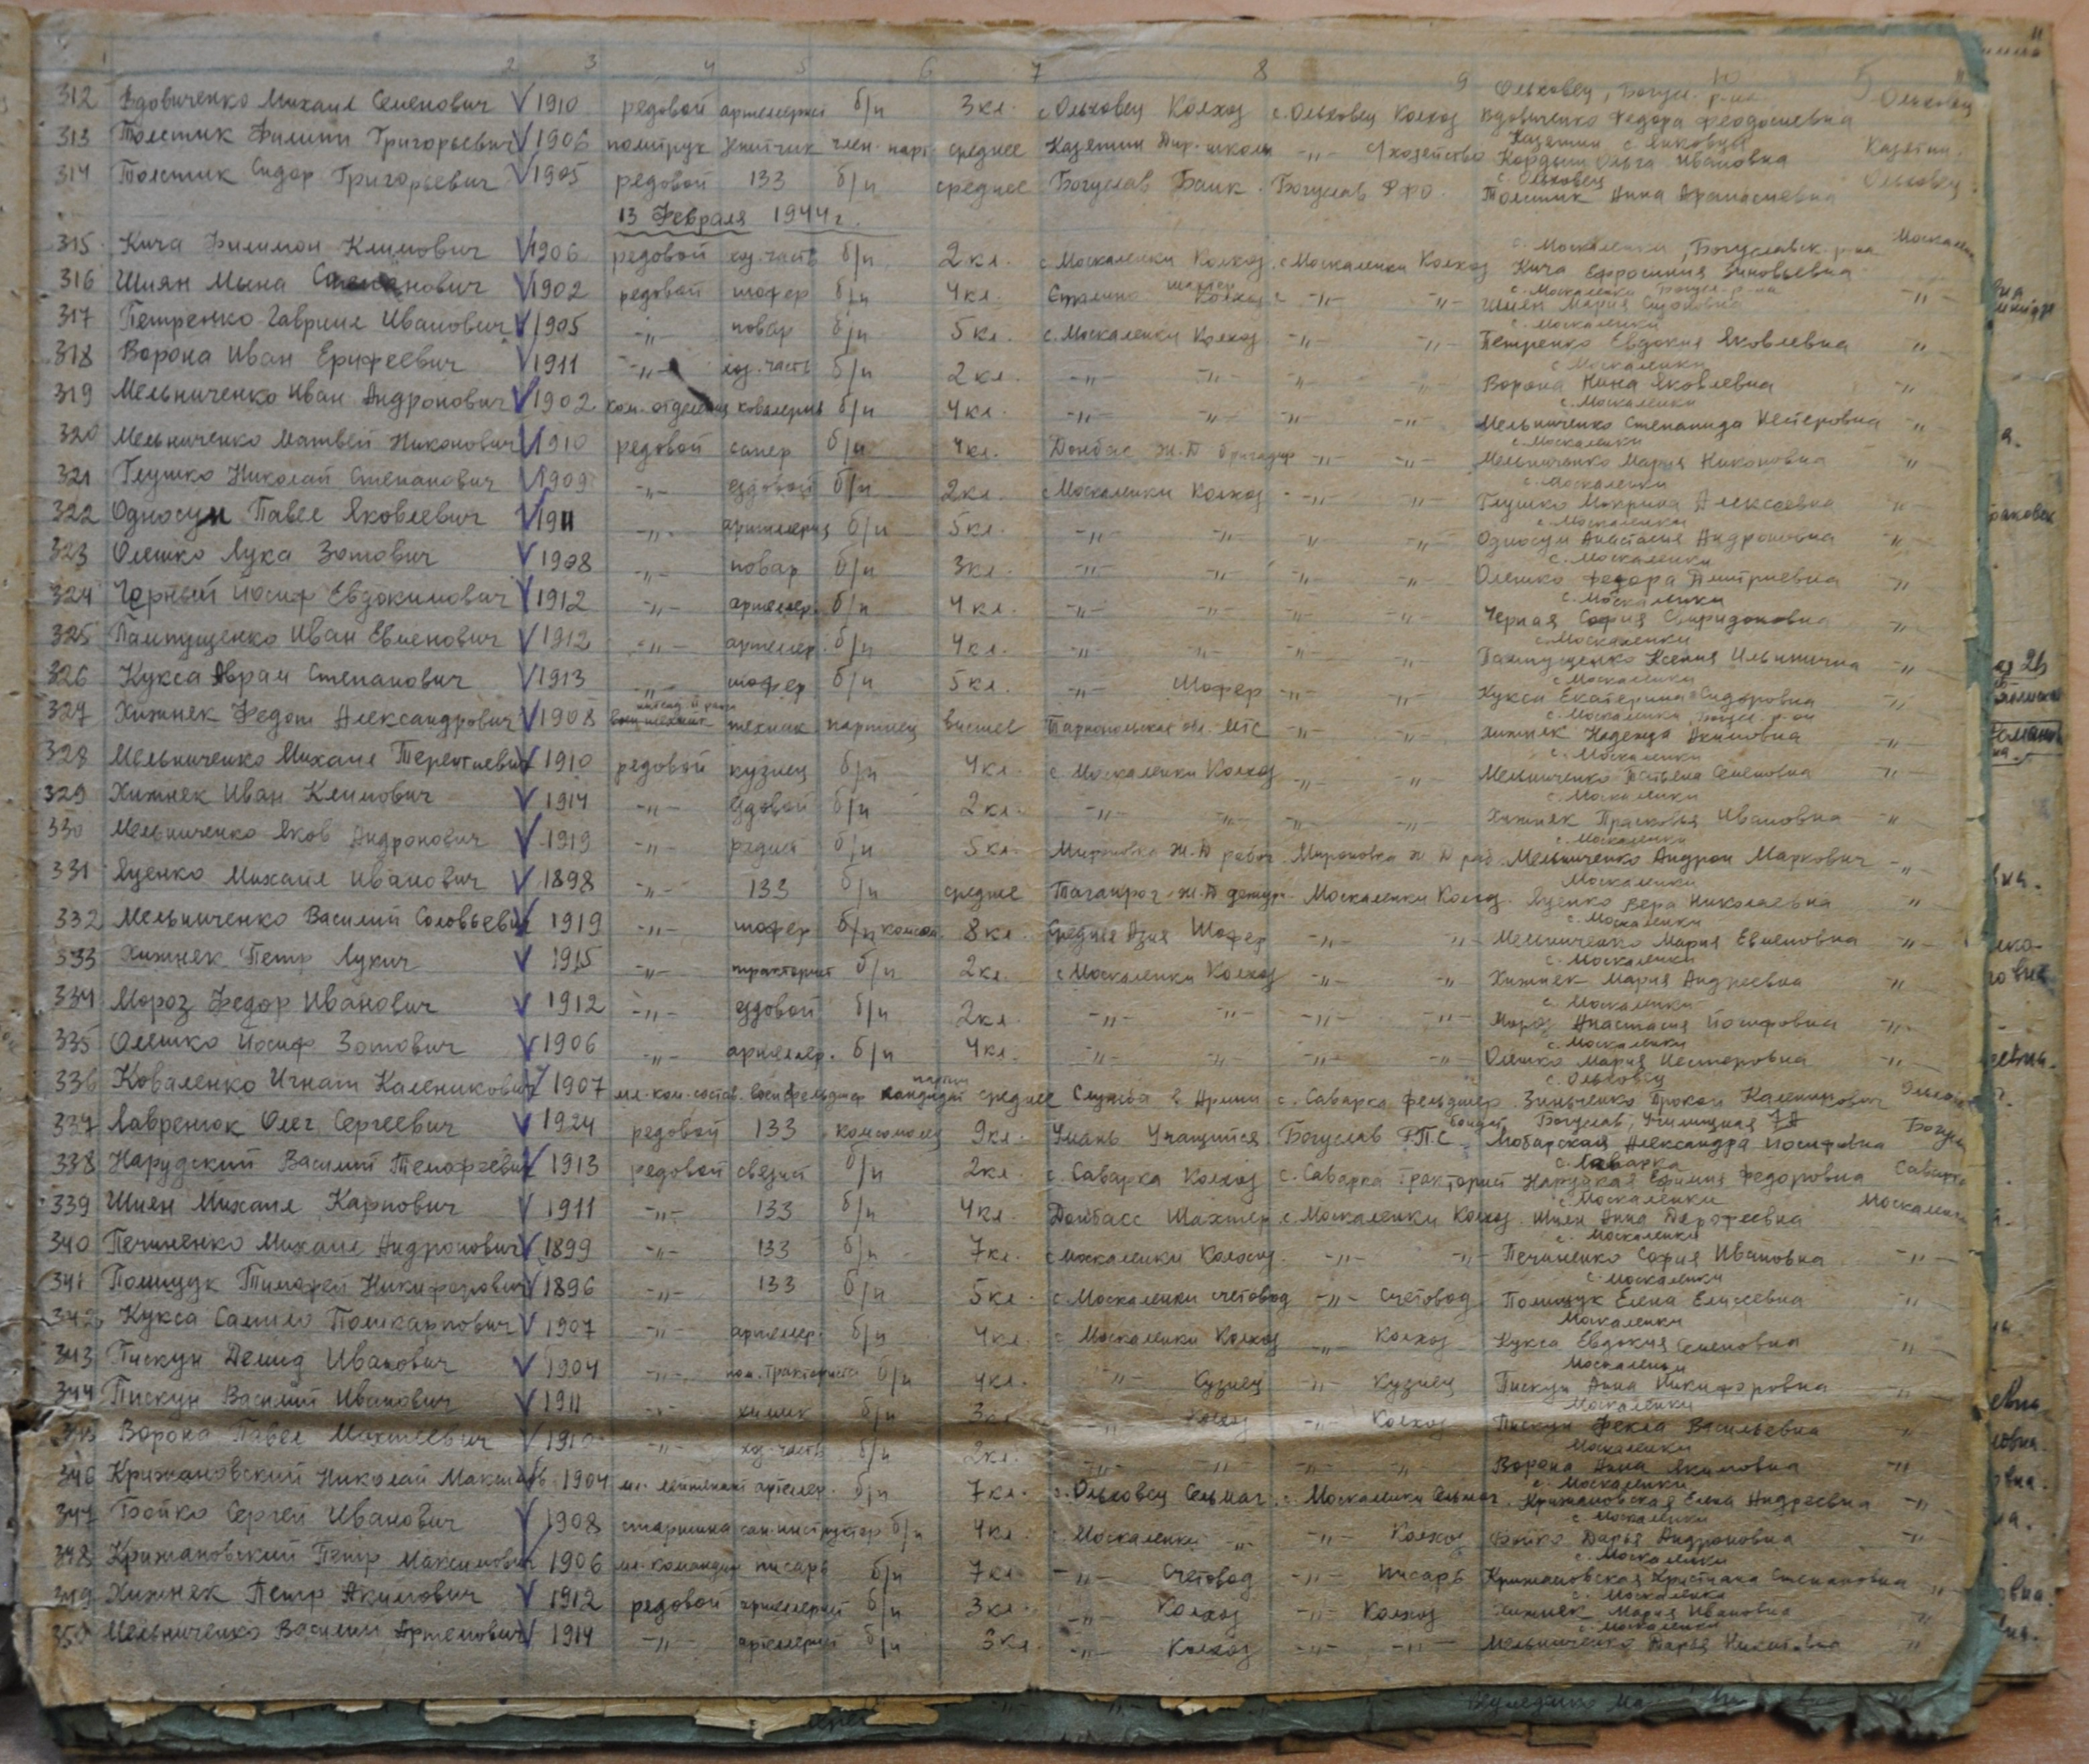 1 2 3 4 5 6 7 8 9 10 11
312 Вдовиченко Михаил Семенович V 1910 редовой артелерист б/п 3 кл. с. Ольховец Колхоз с. Ольховец Колхоз Ольховец, Богусл. р-на Вдовиченко Федора Феодосиевна Ольховец
313 Толстик Филипп Григорьевич V 1906 политрук член. парт среднее Казятин Дир. школи -"- С/хозейство Казятин с. Янковцы Кордыш Ольга Ивановна Казятин.
314 Толстик Сидор Григорьевич V 1905 редовой 133 б/п среднее Богуслав Банк. Богуслав РФО. с. Ольховец Толстик Анна Афанасиевна Ольховец
13 Февраля 1944 г.
315 Кича Филимон Климович V 1906 редовой хоз. часть б/п 2 кл. с. Москаленки Колхоз с. Москаленки Колхоз с. Москаленки, Богуславск. р-на Кича Ефросиния Зиновьевна Москален
316 Шиян Мына V 1902 редовой шофер б/п 4 кл. Колхоз -"- -"- с. Москаленки Богусл. р-на Шиян Мария -"-
317 Петренко Гаврил Иванович V 1905 -"- повар б/п 5 кл. с. Москаленки Колхоз -"- -"- с. Москаленки Петренко Евдокия Яковлевна -"-
318 Ворона Иван Ерифеевич V 1911 -"- хоз. часть б/п 2 кл. -"- -"- -"- -"- с. Москаленки Ворона Нина Яковлевна -"-
319 Мельниченко Иван Андронович V 1902 ком. отделения ковалерия б/п 4 кл. -"- -"- -"- -"- с. Москаленки Мельниченко Степанида Нестеровна -"-
320 Мельниченко Матвей Никонович V 1910 редовой сапер б/п 4 кл. Донбас Ж.Д бригадир -"- -"- с. Москаленки Мельниченко Мария Никоновна -"-
321 Глушко Николай Степанович V 1909 -"- ездовой б/п 2 кл. с Москаленки Колхоз -"- -"- с. Москаленки Глушко Мокрина Алексеевна -"-
322 Односум Павел Яковлевич V 1911 -"- артелерия б/п 5 кл. -"- -"- -"- -"- с. Москаленки Односум Анастасия Андроновна -"-
323 Олешко Лука Зотович V 1908 -"- повар б/п 3 кл. -"- -"- -"- -"- с. Москаленки Олешко Федора Дмитриевна -"-
324 Чорный Иосиф Евдокимович V 1912 -"- артелер. б/п 4 кл. -"- -"- -"- -"- с. Москаленки Черная София Свиридоновна -"-
325 Пампущенко Иван Евменович V 1912 -"- артелер. б/п 4 кл. -"- -"- -"- -"- с. Москаленки Пампущенко Ксения Ильинична -"-
326 Кукса Аврам Степанович V 1913 -"- шофер б/п 5 кл. -"- Шофер -"- -"- с. Москаленки Кукса Екатерина Сидоровна -"-
327 Хижнек Федот Александрович V 1908 техник партиец висшее Тарнопольская обл. МТС -"- -"- с. Москаленки, Богусл. р-он Хижнек Надежда Акимовна -"-
328 Мельниченко Михаил Терентиевич V 1910 редовой кузнец б/п 4 кл. с. Москаленки Колхоз -"- -"- с. Москаленки Мельниченко Татьяна Семеновна -"-
329 Хижнек Иван Климович V 1914 -"- ездовой б/п 2 кл. -"- -"- -"- -"- с. Москаленки Хижнек Прасковья Ивановна -"-
330 Мельниченко Яков Андронович V 1919 -"- радист б/п 5 кл. Мироновка Ж.Д рабоч. Мироновка ж.Д раб. с. Москаленки Мельниченко Андрон Маркович -"-
331 Яценко Михаил Иванович V 1898 -"- 133 б/п среднее Таганрог Ж.Д дежур. Москаленки Колхоз. Москаленки Яценко Вера Николаевна -"-
332 Мельниченко Василий Соловьевич V 1919 -"- шофер б/п комсом. 8 кл. Средняя Азия Шофер -"- -"- с. Москаленки Мельниченко Мария Евменовна -"-
333 Хижнек Петр Лукич V 1915 -"- тракторист б/п 2 кл. с Москаленки Колхоз -"- -"- с. Москаленки Хижнек Мария Андреевна -"-
334 Мороз Федор Иванович V 1912 -"- ездовой б/п 2 кл. -"- -"- -"- -"- с. Москаленки Мороз Анастасия Иосифовна -"-
335 Олешко Иосиф Зотович V 1906 -"- артелер. б/п 4 кл. -"- -"- -"- -"- с. Москаленки Олешко Мария Нестеровна -"-
336 Коваленко Игнат Каленикович V 1907 мл. ком. состав. воен фельдшер кандидат партии среднее Служба в Армии с. Саварка фельдшер с. Ольховец Зиньченко Прокоп Каленикович Ольхов
337 Лавренюк Олег Сергеевич V 1924 редовой 133 комсомолец 9 кл. Умань Учащийся Богуслав Р.П.С. Богуслав, Училищная 7А Любарская Александра Иосифовна Богусл
338 Нарудский Василий Темофеевич V 1913 редовой связист б/п 2 кл. с. Саварка Колхоз с. Саварка тракторист с. Саварка Нарудская Ефимия Федоровна Саварка
339 Шиян Михаил Карпович V 1911 -"- 133 б/п 4 кл. Донбасс Шахтер с. Москаленки Колхоз. с. Москаленки Шиян Анна Дорофеевна Москаленк
340 Печиненко Михаил Андронович V 1899 -"- 133 б/п 7 кл. с Москаленки Колхоз. -"- -"- с. Москаленки Печиненко София Ивановна -"-
341 Полищук Тимофей Никифорович V 1896 -"- 133 б/п 5 кл. с. Москаленки счетовод -"- счетовод с. Москаленки Полищук Елена Елисеевна -"-
342 Кукса Самило Полікарпович V 1907 -"- артелер. б/п 4 кл. с Москаленки Колхоз -"- Колхоз Москаленки Кукса Евдокия Семеновна -"-
343 Пискун Демид Иванович V 1904 -"- пом. тракториста б/п 4 кл. -"- Кузнец -"- Кузнец Москаленки Пискун Анна Никифоровна -"-
344 Пискун Василий Иванович V 1911 -"- химик б/п 3 кл. -"- Колхоз -"- Колхоз Москаленки Пискун Фекла Васильевна -"-
345 Ворона Павел V 1910 -"- хоз. часть б/п 2 кл. -"- -"- -"- -"- Москаленки Ворона Анна Якимовна -"-
346 Крижановский Николай 1904 мл. лейтенант артелер. б/п 7 кл. с. Ольховец Сельмаг с. Москаленки Сельмаг. с. Москаленки Крижановская Елена Андреевна -"-
347 Бойко Сергей Иванович V 1908 старшина сан. инструктор б/п 4 кл. с. Москаленки -"- -"- Колхоз с. Москаленки Бойко Дарья Андроновна -"-
348 Крижановский Петр Максимович V 1906 мл. командир писарь б/п 7 кл. -"- Счетовод -"- писарь с. Москаленки Крижановская Христина Степановна -"-
349 Хижнек Петр Акимович V 1912 редовой артелерист б/п 3 кл. -"- Колхоз -"- Колхоз с. Москаленки Хижнек Мария Ивановна -"-
350 Мельниченко Василий Артемович V 1914 -"- артелерист б/п 3 кл. -"- Колхоз -"- -"- с. Москаленки Мельниченко Дарья -"-